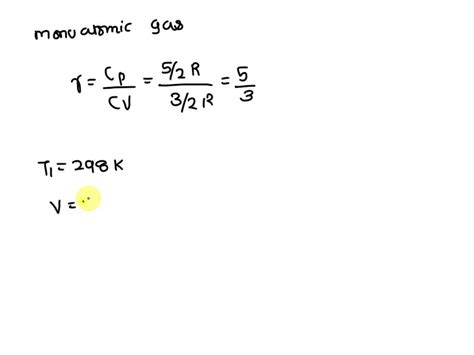 monoatomic gas
γ = Cp/CV = 5/2 R / 3/2 R = 5/3
T1 = 298 K
V =